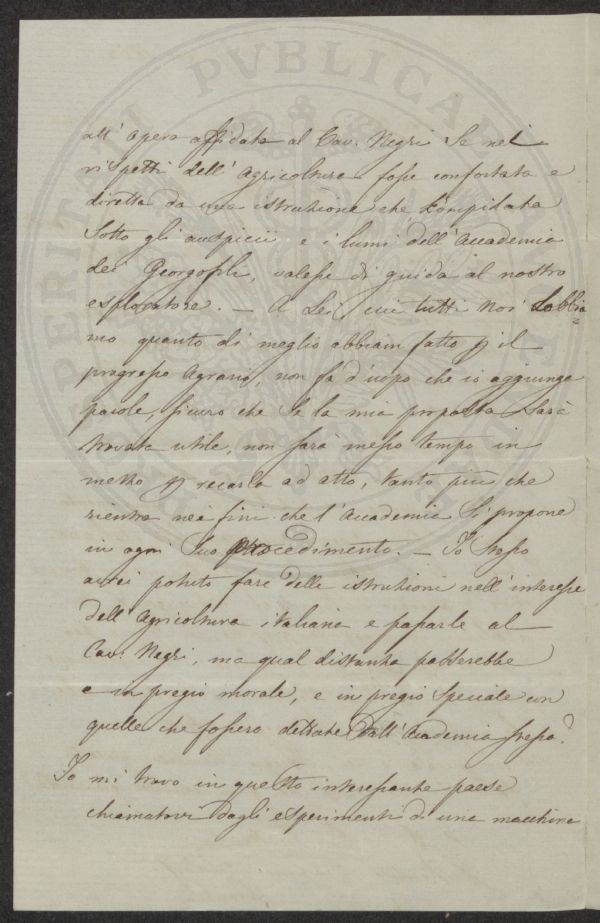 all' opera affidata al Cav. Negri se nei
rispetti dell' Agricoltura fosse confortata e
diretta da una istruzione che compilata
sotto gli auspicii e i lumi dell' Accademia
dei Georgofili, valesse di guida al nostro
esploratore. — A Lei cui tutti noi dobbia=
mo quanto di meglio abbiam fatto p il
progresso Agrario, non fa d'uopo che io aggiunga
parole, sicuro che se la mia proposta sarà
trovata utile, non sarà messo tempo in
mezzo p recarla ad atto, tanto più che
rientra nei fini che l' Accademia si propone
in ogni suo procedimento. — Io stesso
avrei potuto fare delle istruzioni nell' interesse
dell' Agricoltura italiana e passarle al
Cav. Negri, ma qual distanza passerebbe
e in pregio morale, e in pregio speciale con
quelle che fossero dettate dall' Accademia stessa?
Io mi trovo in questo interessante paese
chiamatovi dagli esperimenti di una macchina
PERITATI PVBLICAE